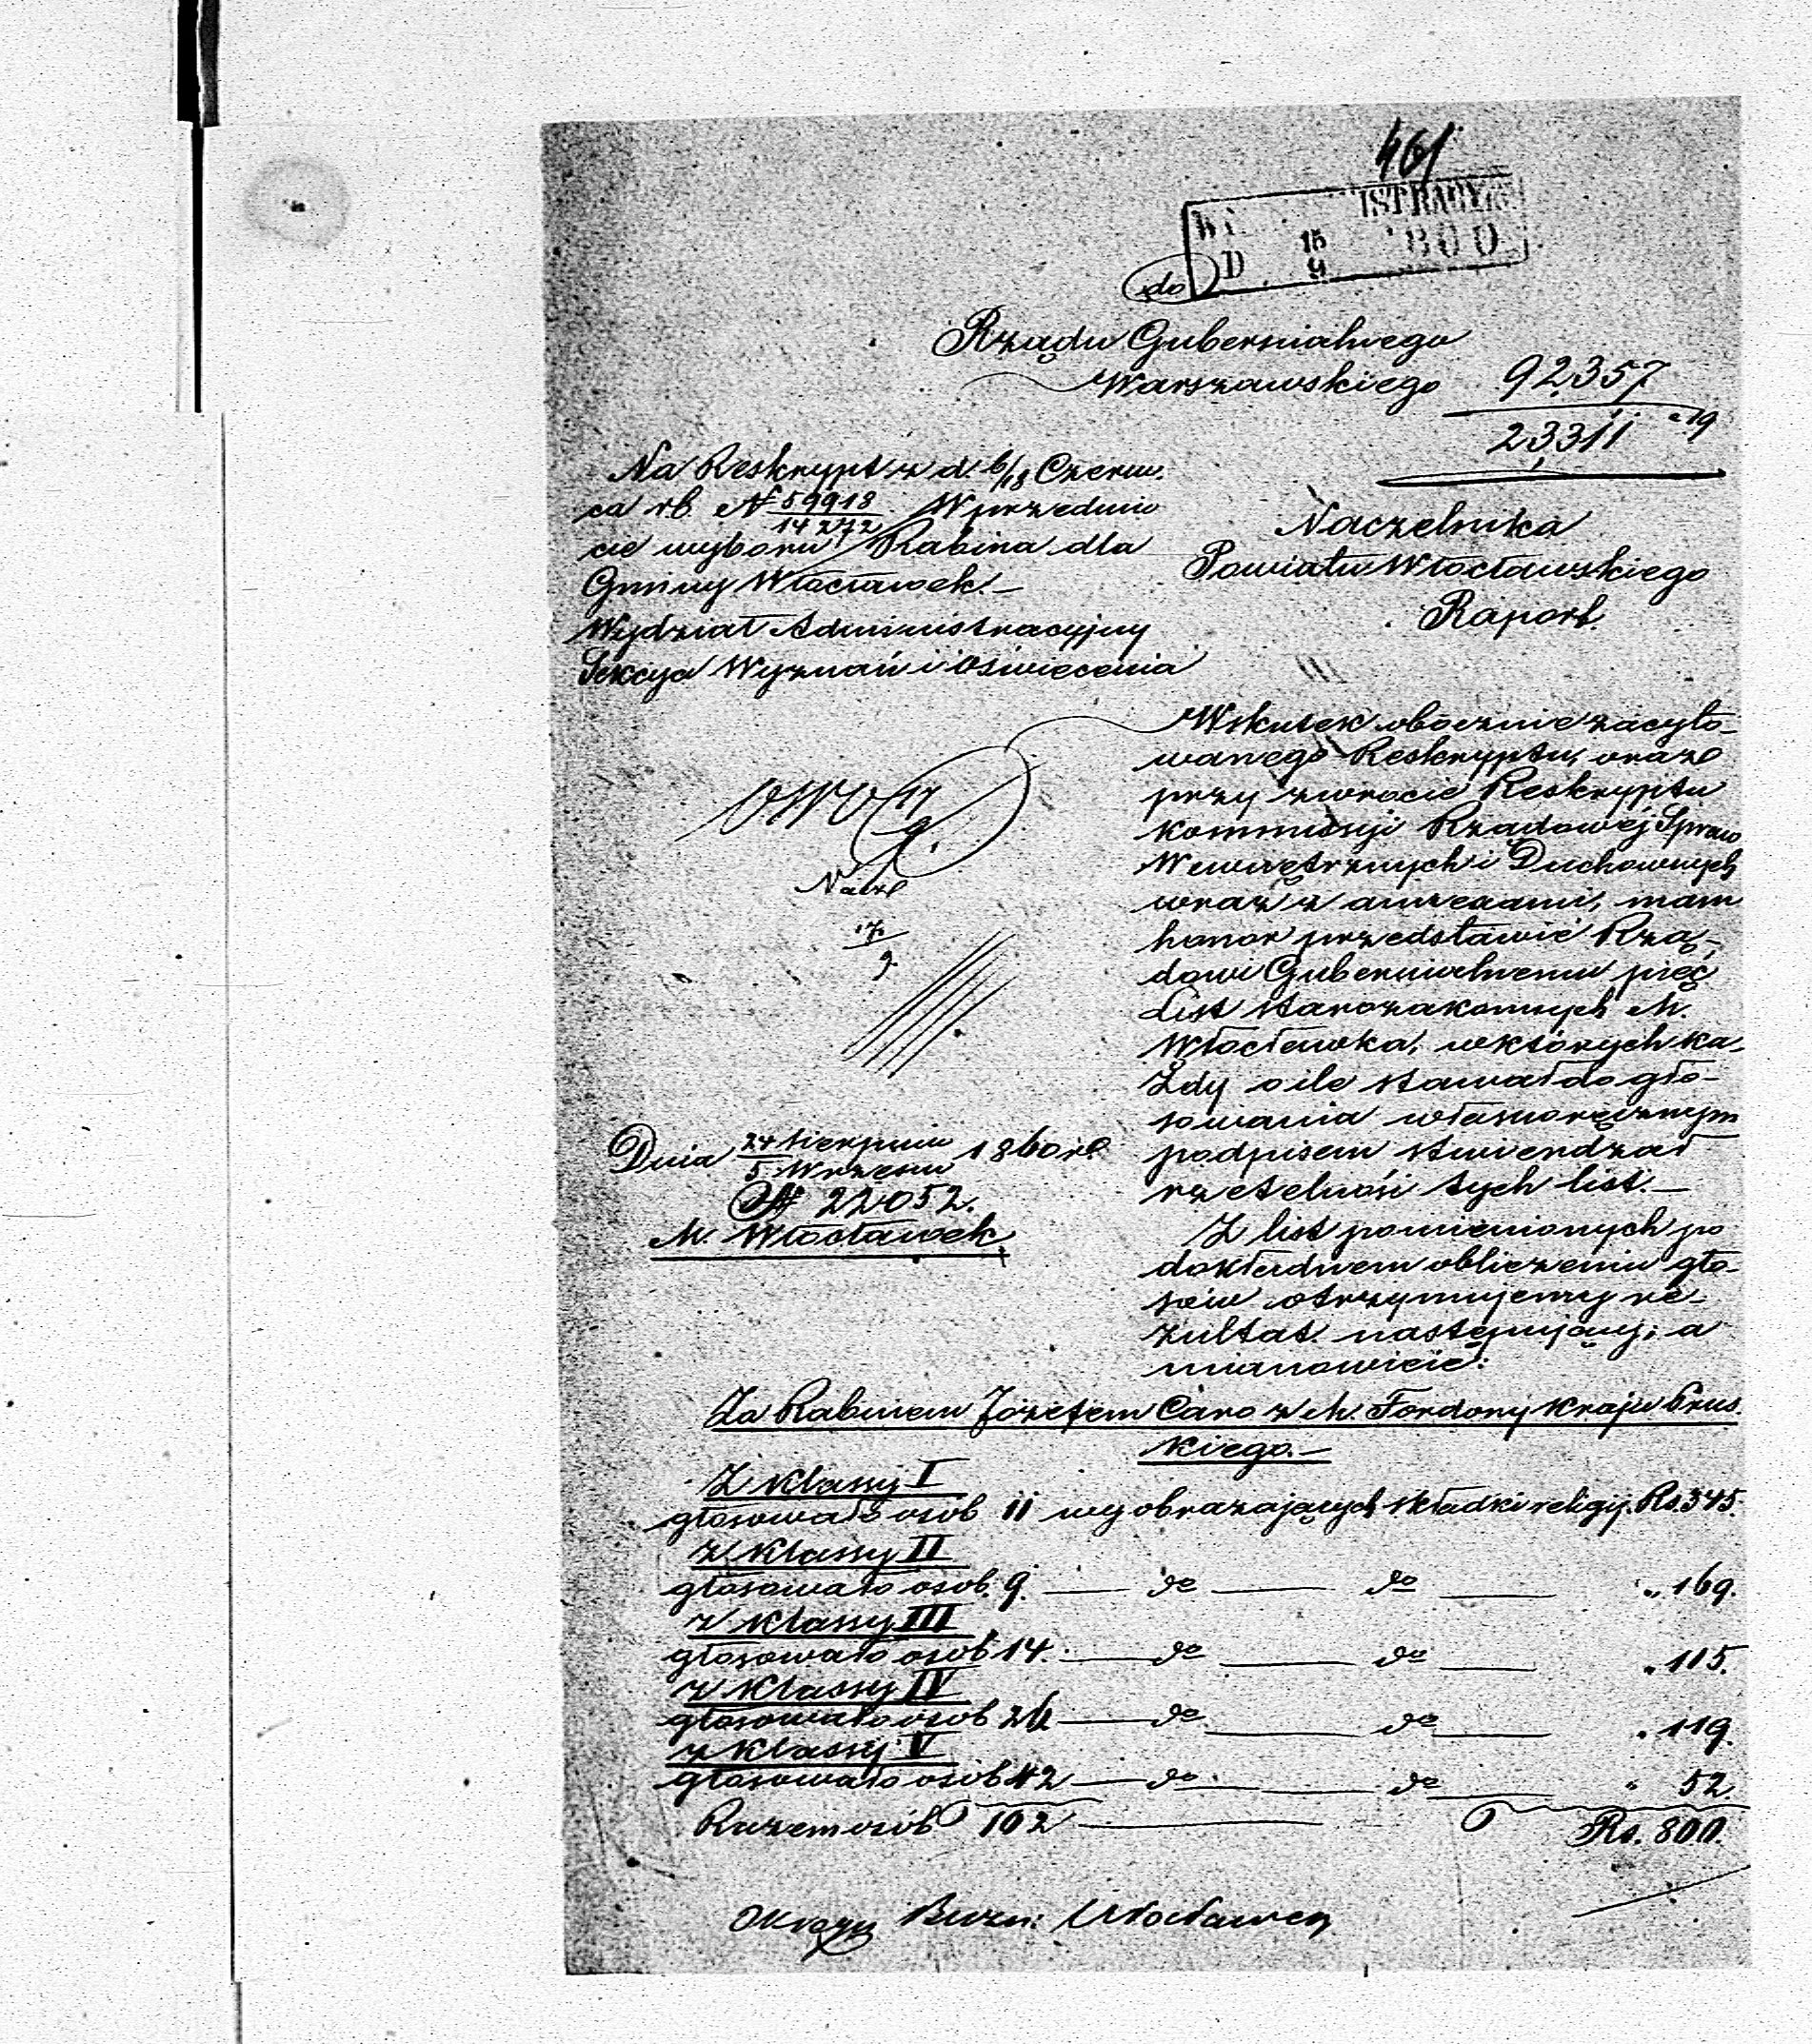 461
15
9
do
Rządu Gubernialnego
Warszawskiego
92357
23311
Na Reskrypt z d. 6/18 Czerw.
ca rb. N 59918/14272 W przedmio
cie wyboru Rabina dla
Gminy Włocławek.—
Wydział Administracyjny
Sekcya Wyznań i Oświecenia
Naczelnika
Powiatu Włocławskiego
Raport.
17
9
Dnia 24 Sierpnia/5 Września 1860 r.
N 22052.
M. Włocławek
Wskutek obocznie zacyto-
wanego Reskryptu, oraz
przy zwrocie Reskryptu
Kommisyi Rządowéj Spraw
Wewnętrznych i Duchownych
wraz z annexami, mam
honor przedstawić Rzą-
dowi Gubernialnemu pięć
List starozakonnych M.
Włocławka, w których ka-
żdy o ile stawał do gło-
sowania własnoręcznym
podpisem stwierdzał
rzetelność tych list.—
Z list pomienionych po
dokładnem obliczeniu gło-
sów otrzymujemy re-
zultat następujący; a
mianowicie:
Za Rabinem Józefem Caro z M. Fordony Kraju Prus
kiego.—
Z Klassy I
głosowało osób 11 wyobrazających składki religij. Rs. 345.
z Klassy II
głosowało osób 9. — do — do — „ 169.
z Klassy III
głosowało osób 14. — do — do — „ 115.
z Klassy IV
głosowało osób 26 — do — do — „ 119.
z Klassy V
głosowało osób 42 — do — do — „ 52.
Razem osób 102 — Rs. 800.
Włocławek